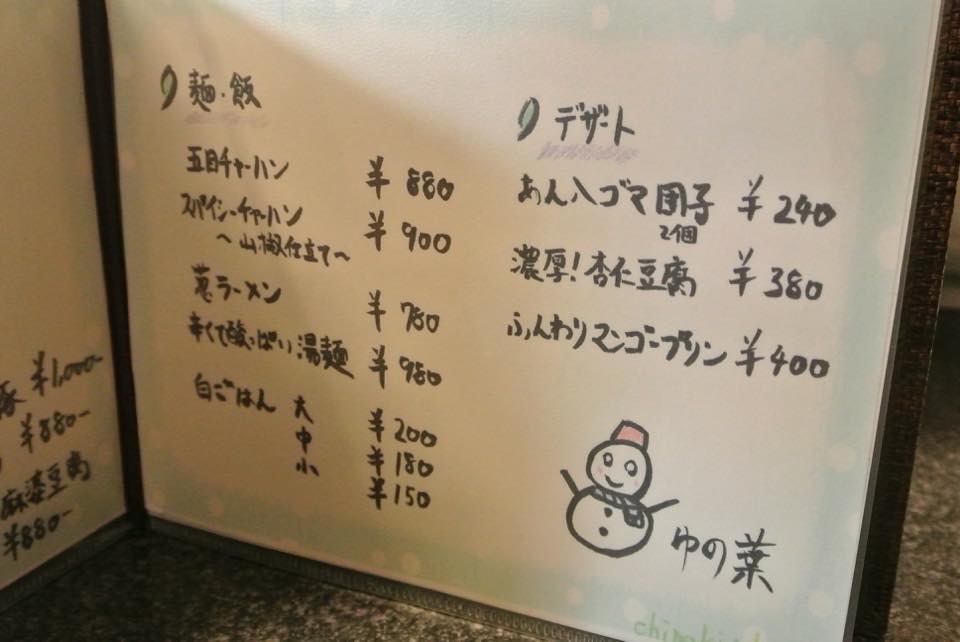 豚 ¥1,000-
¥880-
麻婆豆腐
¥880-
麺・飯
五目チャーハン ¥880
スパイシーチャーハン ¥900
～山椒仕立て～
葱ラーメン ¥780
辛くて酸っぱい湯麺 ¥980
白ごはん 大 ¥200
中 ¥180
小 ¥150
デザート
あん入ゴマ団子 ¥240
2個
濃厚!杏仁豆腐 ¥380
ふんわりマンゴープリン ¥400
ゆの葉